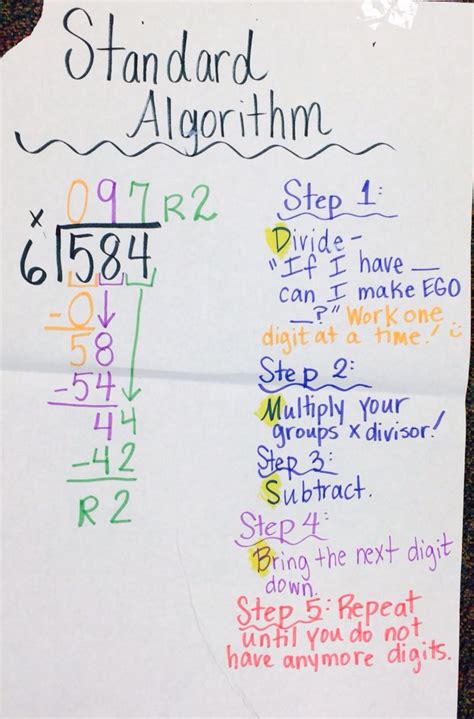 Standard
Algorithm
097R2
x
6 584
-0
58
-54
44
-42
R2
Step 1:
Divide-
"If I have __
can I make EGO
__?" Work one
digit at a time!
Step 2:
Multiply your
groups x divisor!
Step 3:
Subtract.
Step 4:
Bring the next digit
down.
Step 5: Repeat
until you do not
have anymore digits.